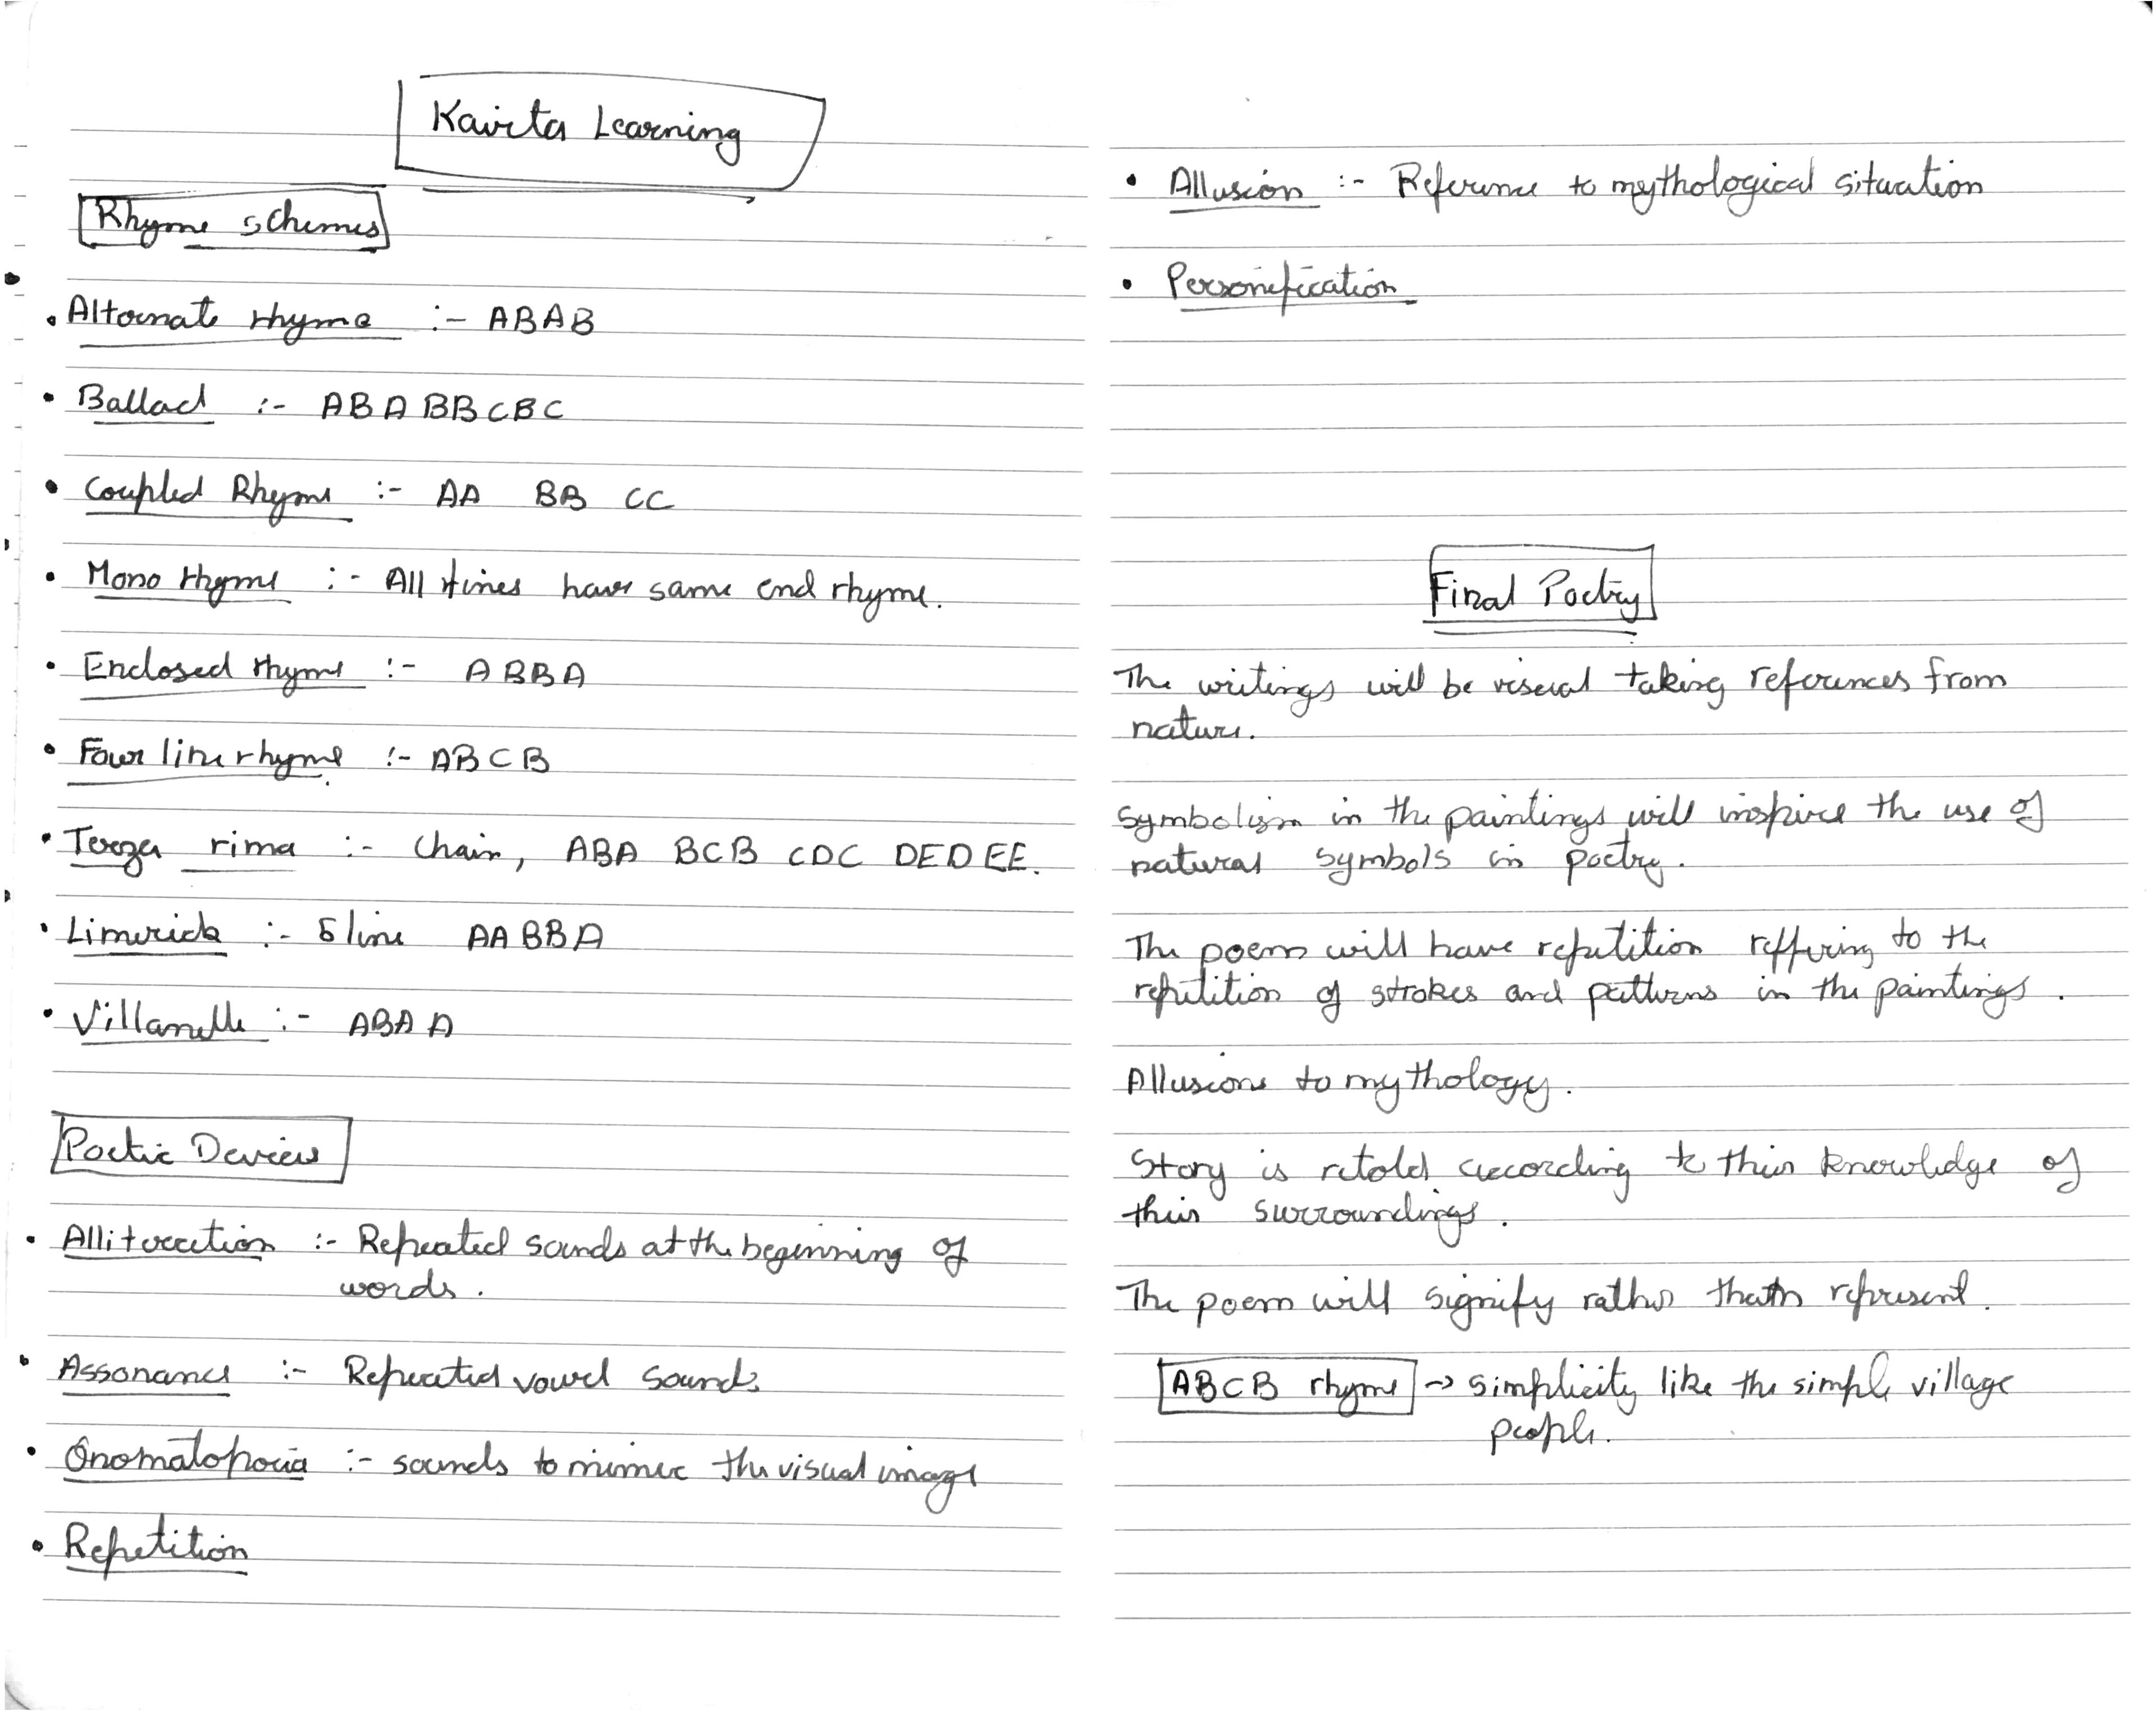 Kavita Learning
Rhyme schemes
• Alternate rhyme :- ABAB
• Ballad :- ABABBCBC
• Coupled Rhyme :- AA BB CC
• Mono rhyme :- All lines have same end rhyme.
• Enclosed rhyme :- ABBA
• Four line rhyme :- ABCB
• Terza rima :- Chain, ABA BCB CDC DED EE.
• Limerick :- 5 line AABBA
• Villanelle :- ABAA
Poetic Devices
• Alliteration :- Repeated sounds at the beginning of
words.
• Assonance :- Repeated vowel sounds
• Onomatopoeia :- sounds to mimic the visual image
• Repetition
• Allusion :- Reference to mythological situation
• Personification
Final Poetry
The writings will be visual taking references from
nature.
Symbolism in the paintings will inspire the use of
natural symbols in poetry.
The poem will have repetition reffering to the
repetition of strokes and patterns in the paintings.
Allusions to mythology.
Story is retold according to their knowledge of
their surroundings.
The poem will signify rather than represent.
ABCB rhyme → simplicity like the simple village
people.